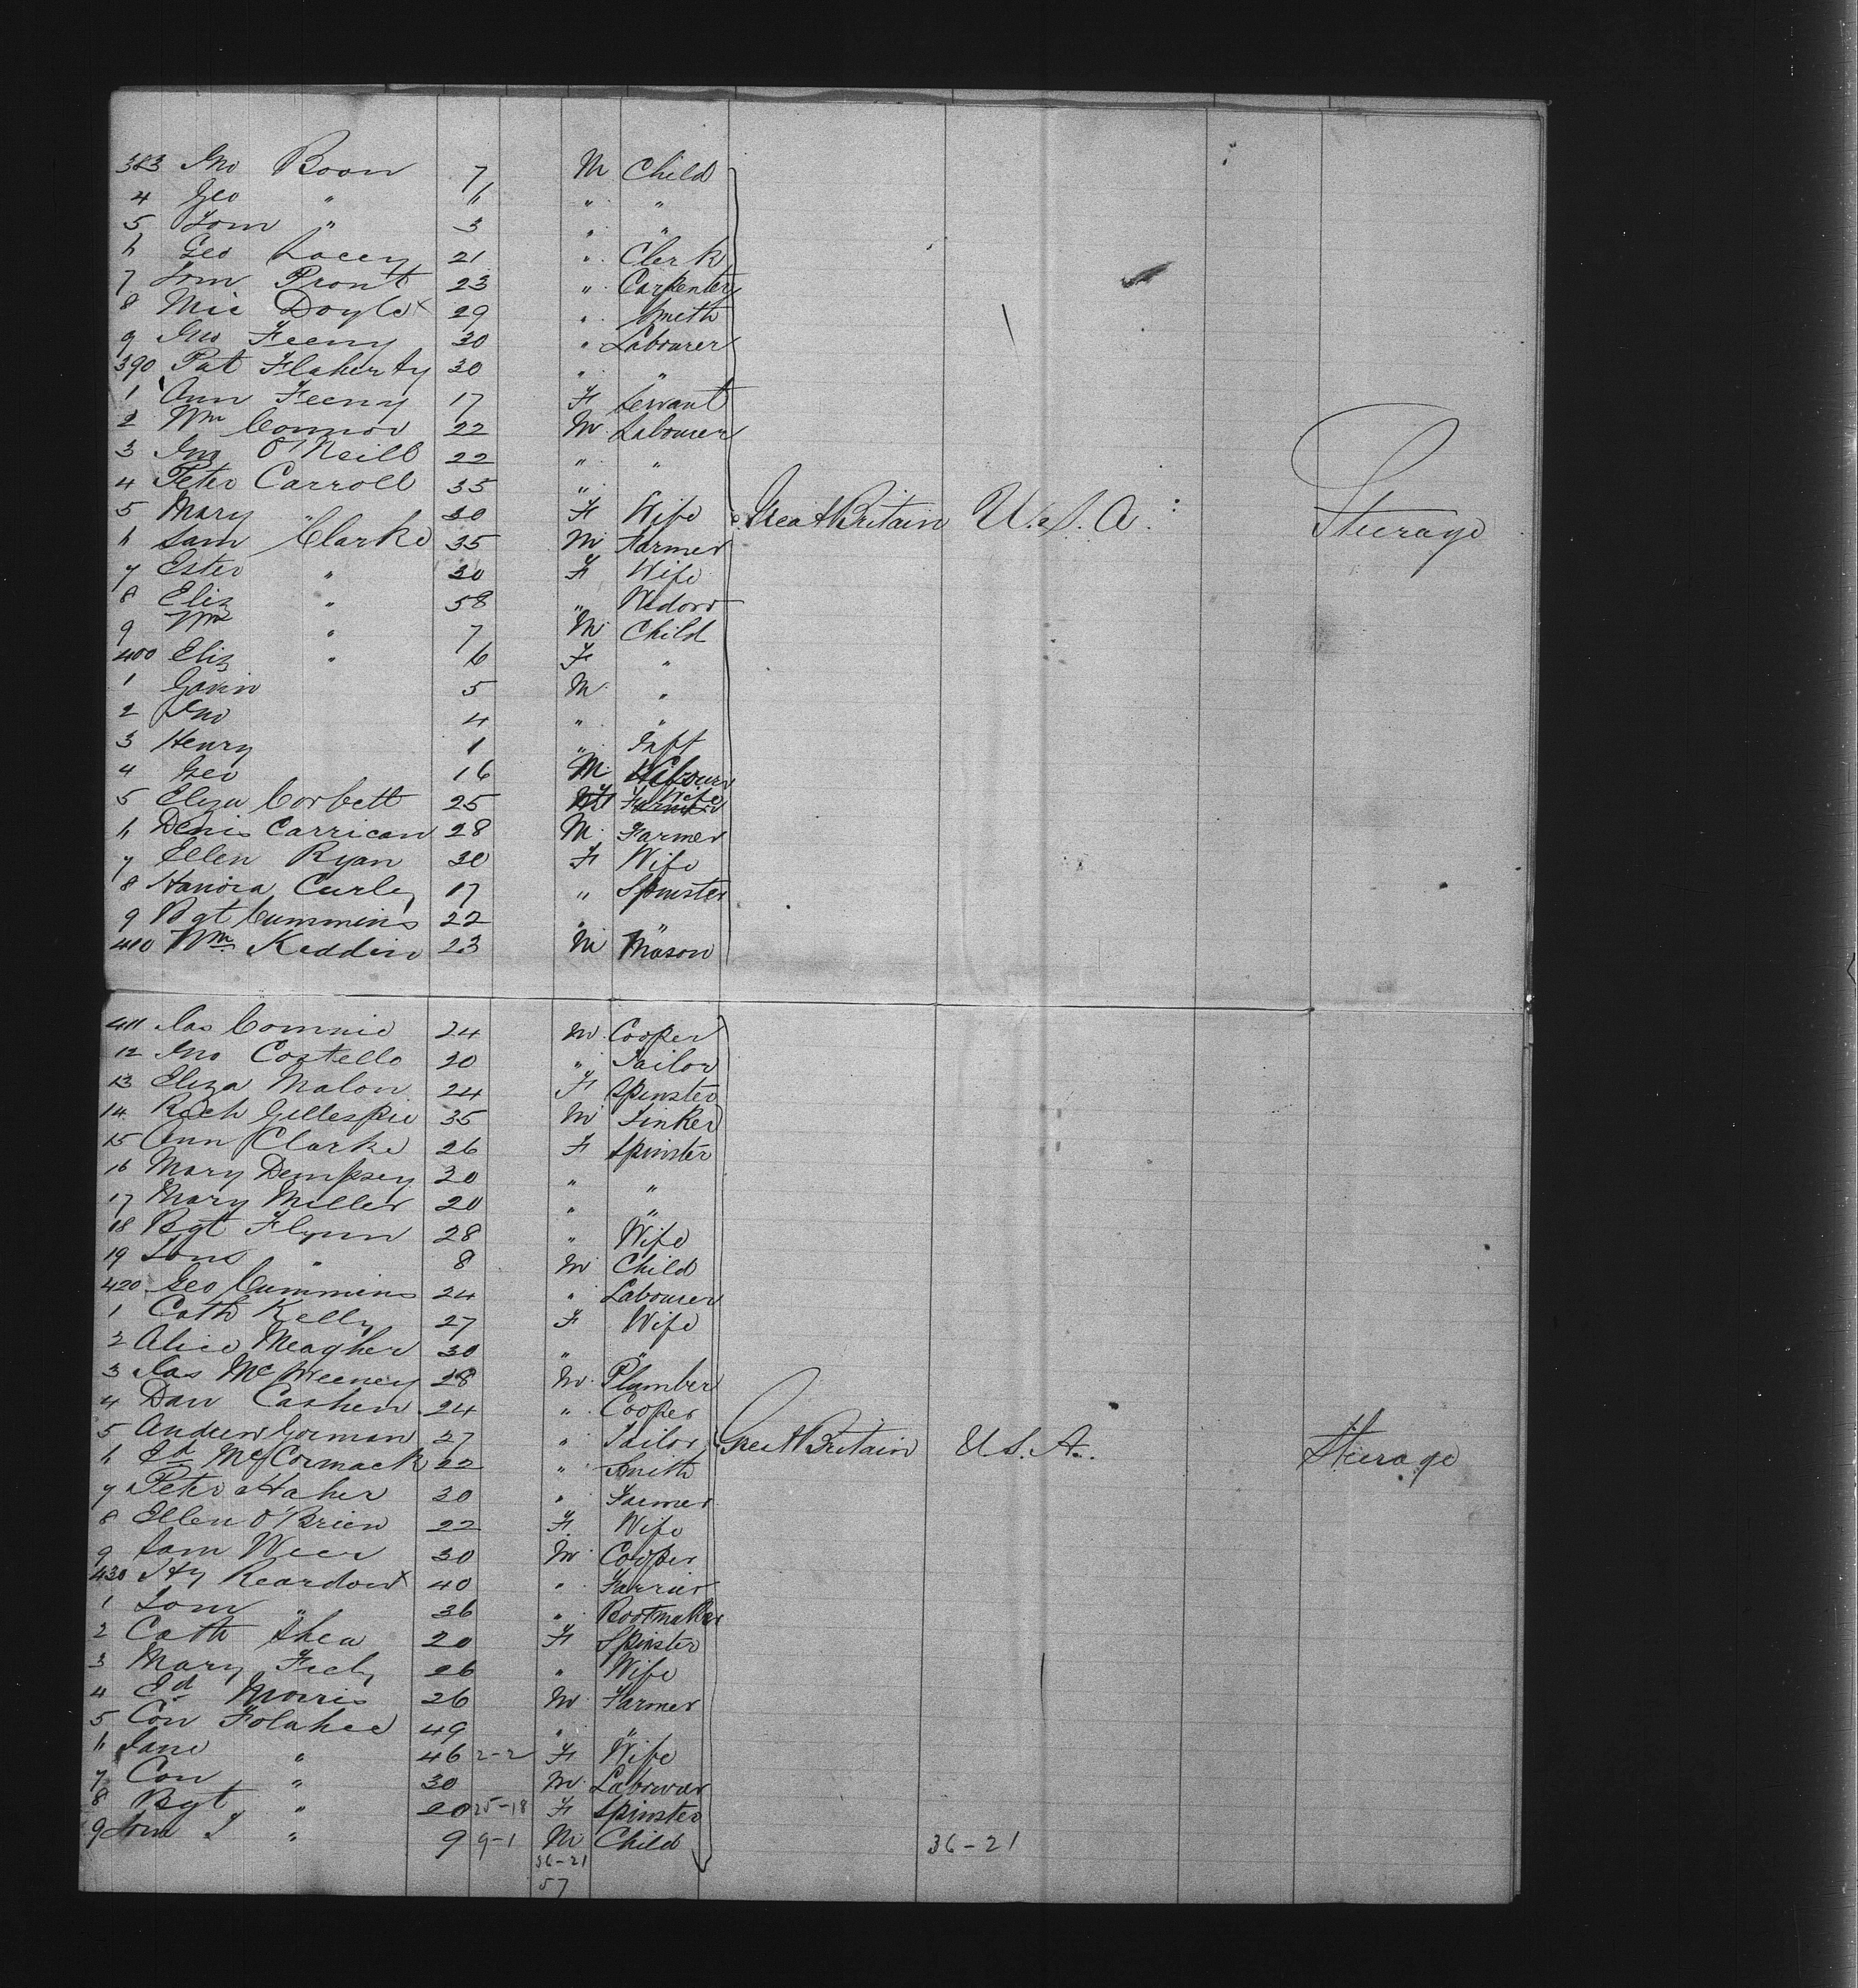 383 Jno Boon 7 M Child
4 Geo " 6 " "
5 Tom " 3 " "
6 Geo Lacey 21 " Clerk
7 Tom Prout 23 " Carpenter
8 Mic Doyle x 29 " Smith
9 Jno Feeny 30 " Labourer
390 Pat Flaherty 30 " "
1 Ann Feeny 17 F Servant
2 Wm Connor 22 M Labourer
3 Jno O'Neill 22 " "
4 Peter Carroll 35 "
5 Mary " 30 F Wife Great Britain U.S.A. Steerage
6 Sam Clarke 35 M Farmer
7 Ester " 30 F Wife
8 Eliz " 58 " Widow
9 Wm " 7 M Child
400 Eliz " 6 F "
1 Gavin 5 M "
2 Jno 4 " "
3 Henry 1 " Inft
4 Geo 16 M Labourer
5 Eliza Corbett 25 F Wife
6 Denis Carrican 28 M Farmer
7 Ellen Ryan 30 F Wife
8 Hanora Curley 17 " Spinster
9 Bgt Cummins 22 " "
410 Wm Keddin 23 M Mason
411 Jas Commie 24 M Cooper
12 Jno Costello 20 " Tailor
13 Eliza Malon 24 F Spinster
14 Rich Gillespie 35 M Tinker
15 Ann Clarke 26 F Spinster
16 Mary Dempsey 30 " "
17 Mary Miller 20 " "
18 Bgt Flynn 28 " Wife
19 Tom " 8 M Child
420 Geo Cummins 24 " Labourer
1 Cath Kelly 27 F Wife
2 Alice Meagher 30 " "
3 Jas McWeeney 28 M Plumber
4 Dan Cashen 24 " Cooper
5 Andrew Gorman 27 " Tailor Great Britain U.S.A. Steerage
6 Ed McCormack 22 " Smith
7 Peter Haher 30 " Farmer
8 Ellen O'Brien 22 F Wife
9 Sam Weer 30 M Cooper
430 Hy Reardon x 40 " Farrier
1 Tom " 36 " Bootmaker
2 Cath Shea 20 F Spinster
3 Mary Feely 26 " Wife
4 Ed Morris 26 M Farmer
5 Con Folahee 49 " "
6 Jane " 46 2-2 F Wife
7 Con " 30 M Labourer
8 Bgt " 20 25-18 F Spinster
9 Tom J " 9 9-1 M Child 36-21
36-21
57